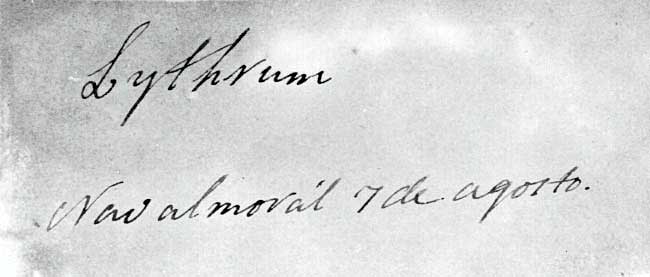 Lythrum
Navalmorál 7 de agosto.